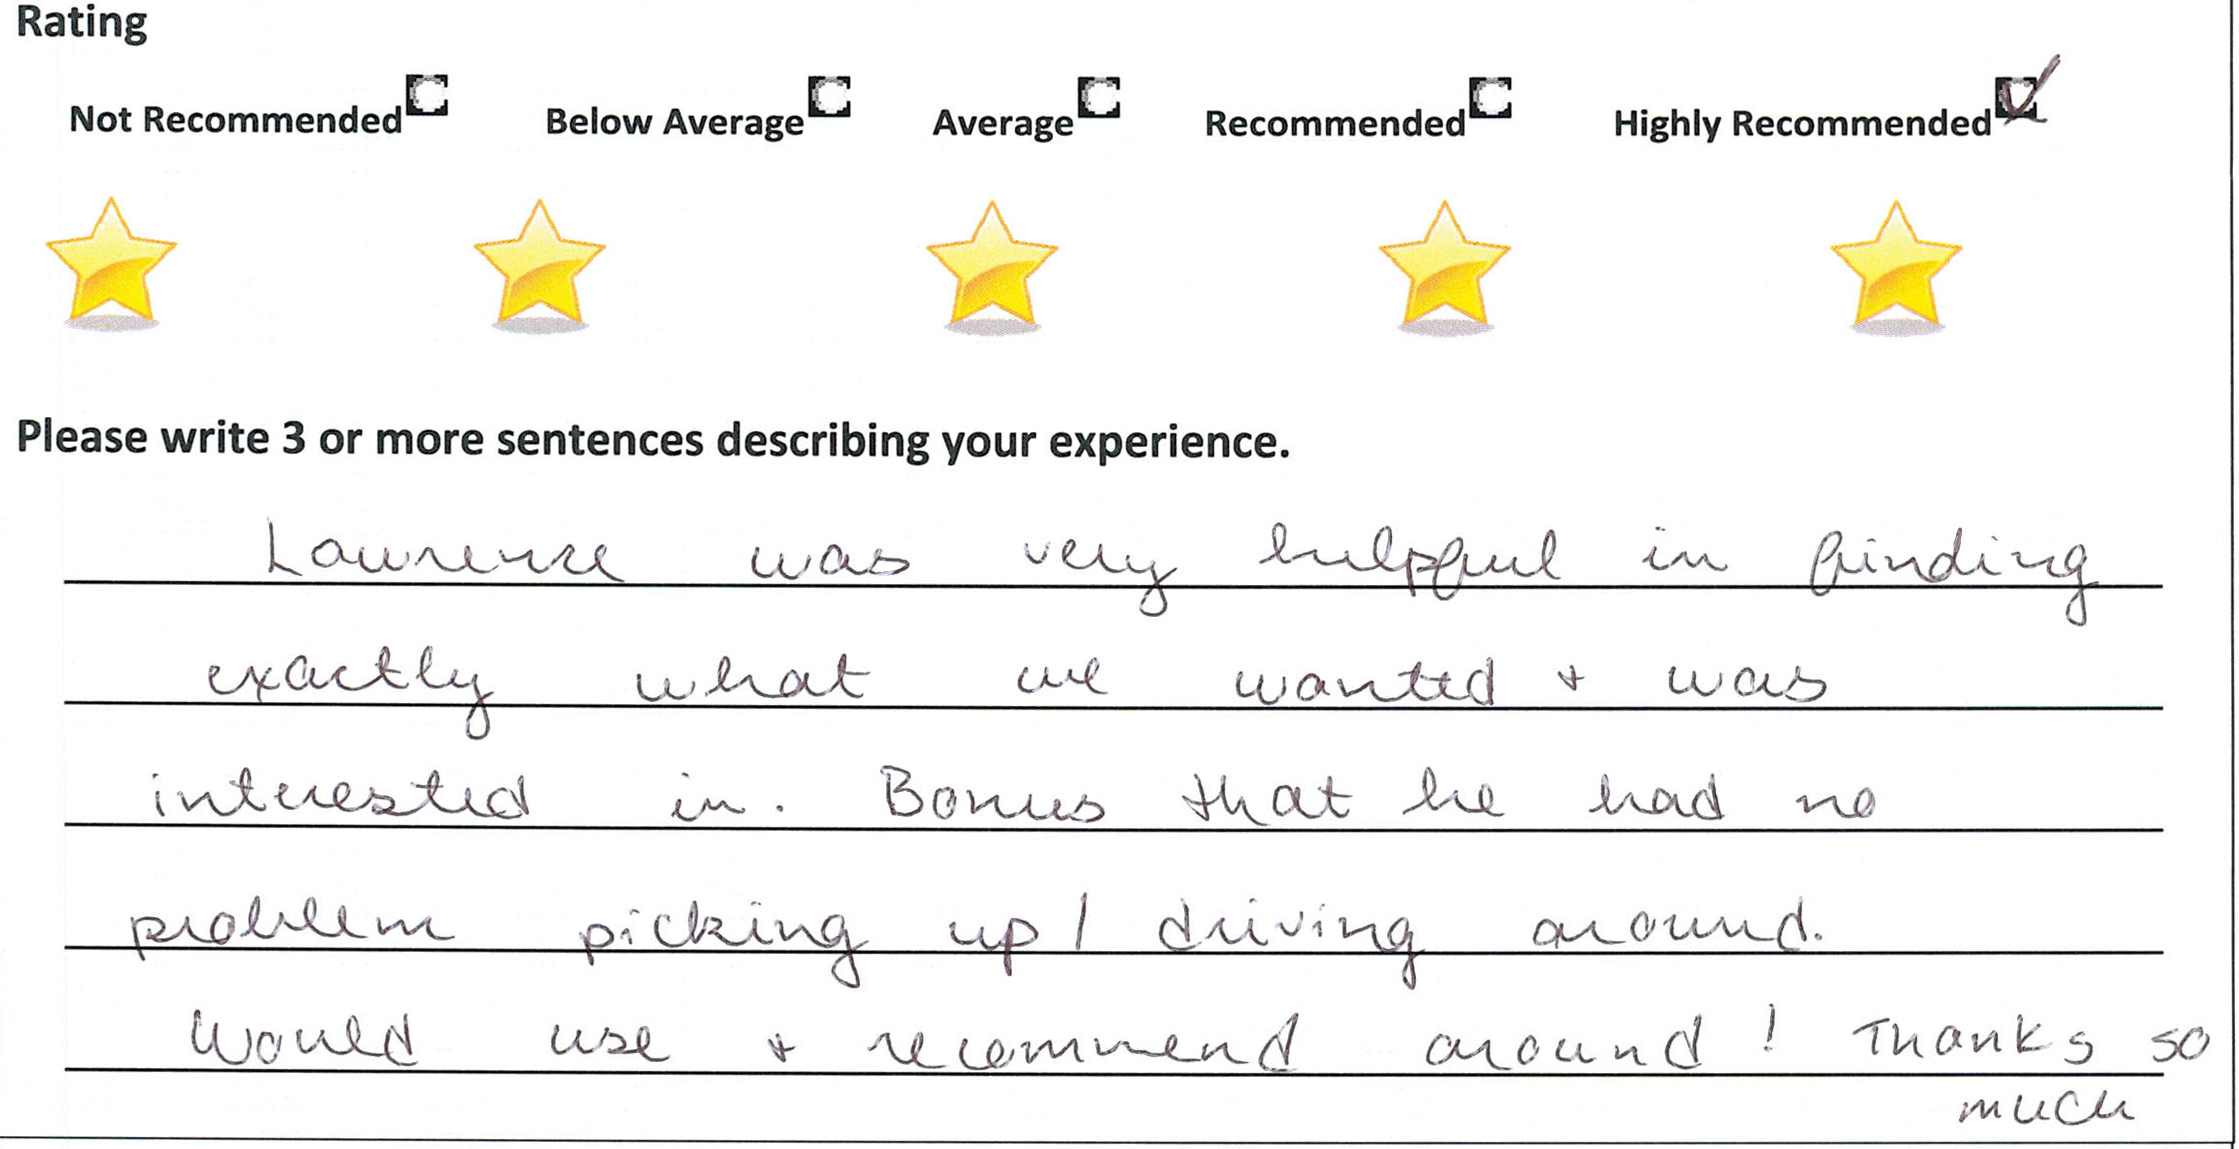 Rating
Not Recommended Below Average Average Recommended Highly Recommended
Please write 3 or more sentences describing your experience.
Lawrence was very helpful in finding
exactly what we wanted + was
interested in. Bonus that he had no
problem picking up / driving around.
Would use + recommend around! Thanks so
much